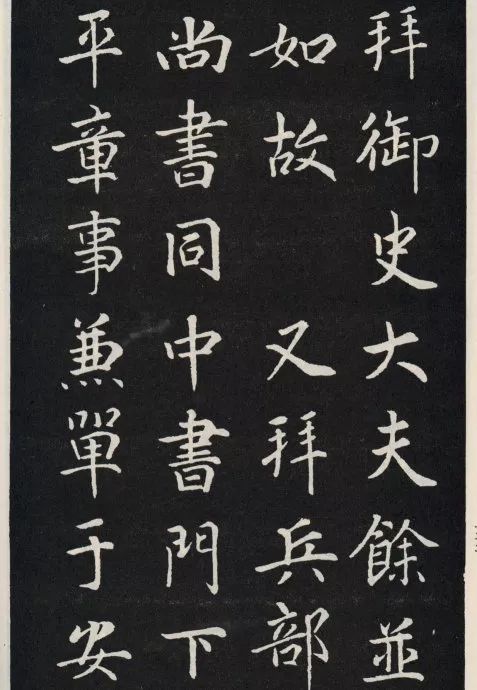 拜御史大夫餘並
如故又拜兵部
尚書同中書門下
平章事兼單于安